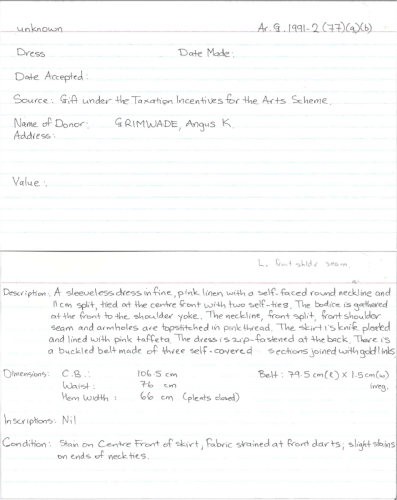 unknown Ar. G. 1991-2 (77)(a)(b)
Dress Date Made:
Date Accepted:
Source: Gift under the Taxation Incentives for the Arts Scheme.
Name of Donor: GRIMWADE, Angus K.
Address:
Value:
L. front shldr seam
Description: A sleeveless dress in fine, pink linen with a self-faced round neckline and
11cm split, tied at the centre front with two self-ties. The bodice is gathered
at the front to the shoulder yoke. The neckline, front split, front shoulder
seam and armholes are topstitched in pink thread. The skirt is knife pleated
and lined with pink taffeta. The dress is zip-fastened at the back. There is
a buckled belt made of three self-covered sections joined with gold links
Dimensions: C.B.: 106.5 cm Belt: 79.5cm(l) X 1.5cm(w)
Waist: 76 cm irreg.
Hem Width: 66 cm (pleats closed)
Inscriptions: Nil
Condition: Stain on Centre Front of skirt, fabric strained at front darts; slight stains
on ends of neck ties.